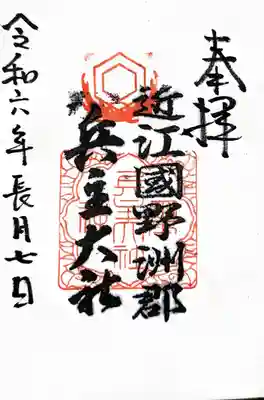 奉拝
近江國野洲郡
兵主大社
令和六年長月七日